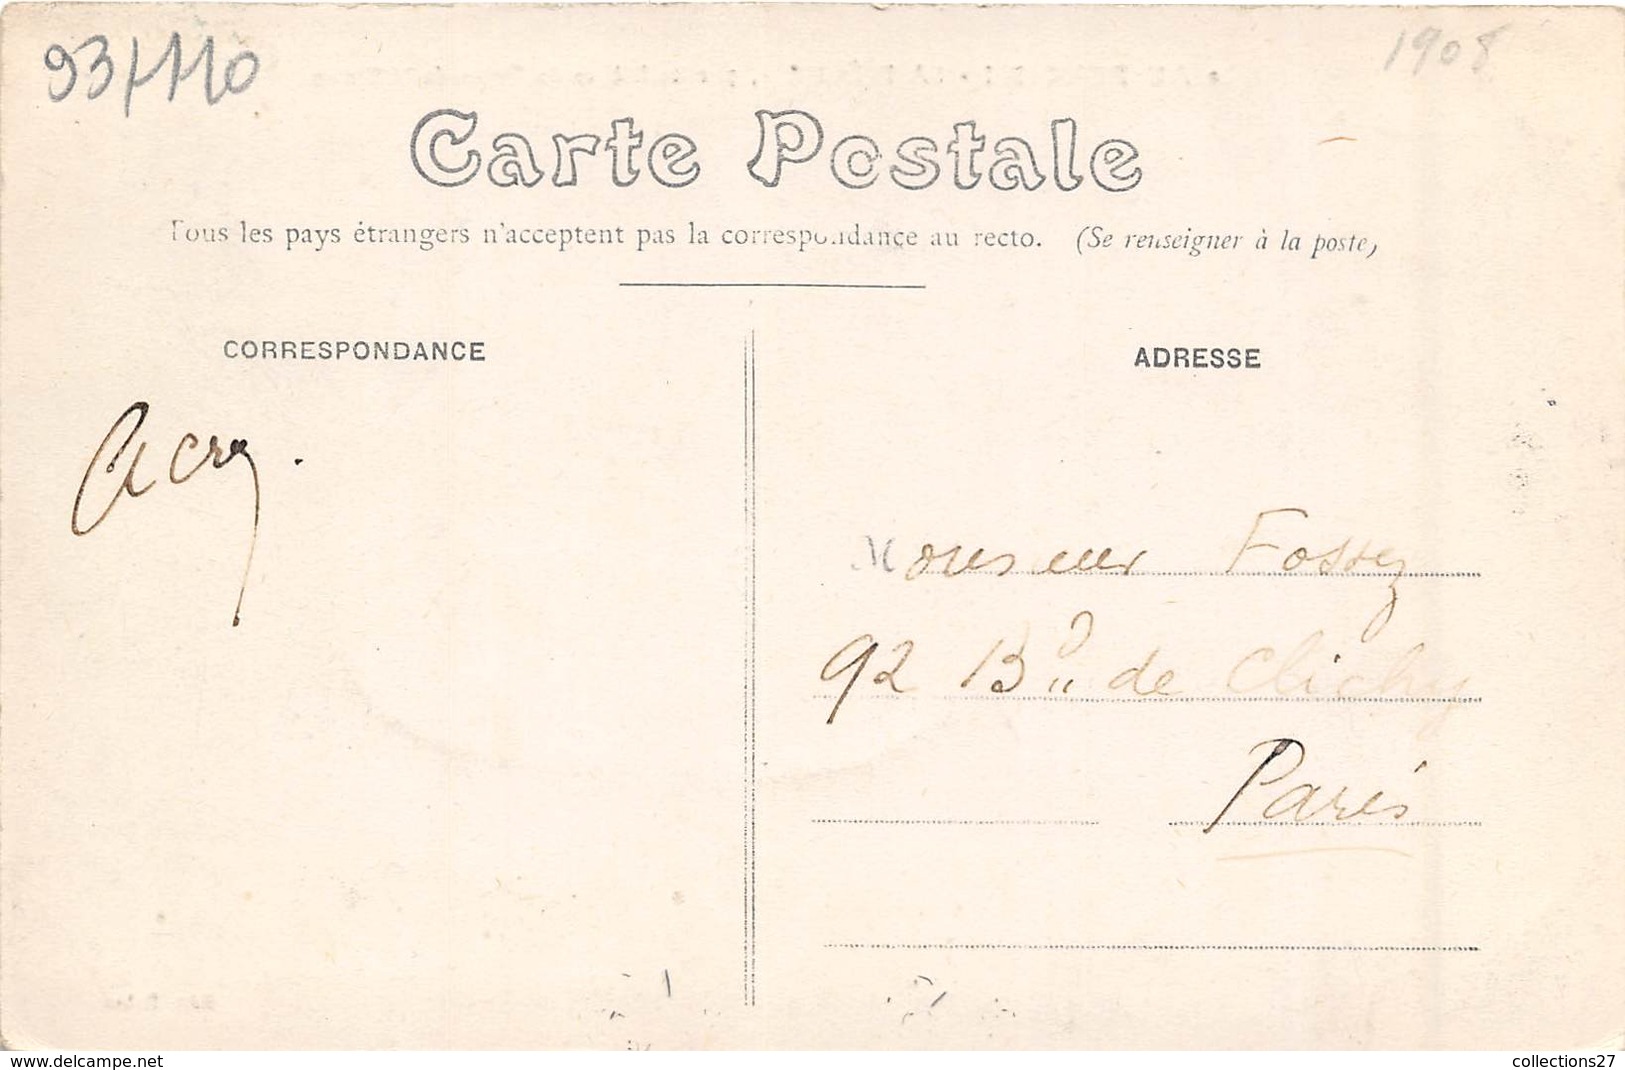 93/110
1908
Carte Postale
Tous les pays étrangers n'acceptent pas la correspondance au recto. (Se renseigner à la poste)
CORRESPONDANCE
ADRESSE
Monsieur Fossey
92 Bd de Clichy
Paris
delcampe.net
collections27